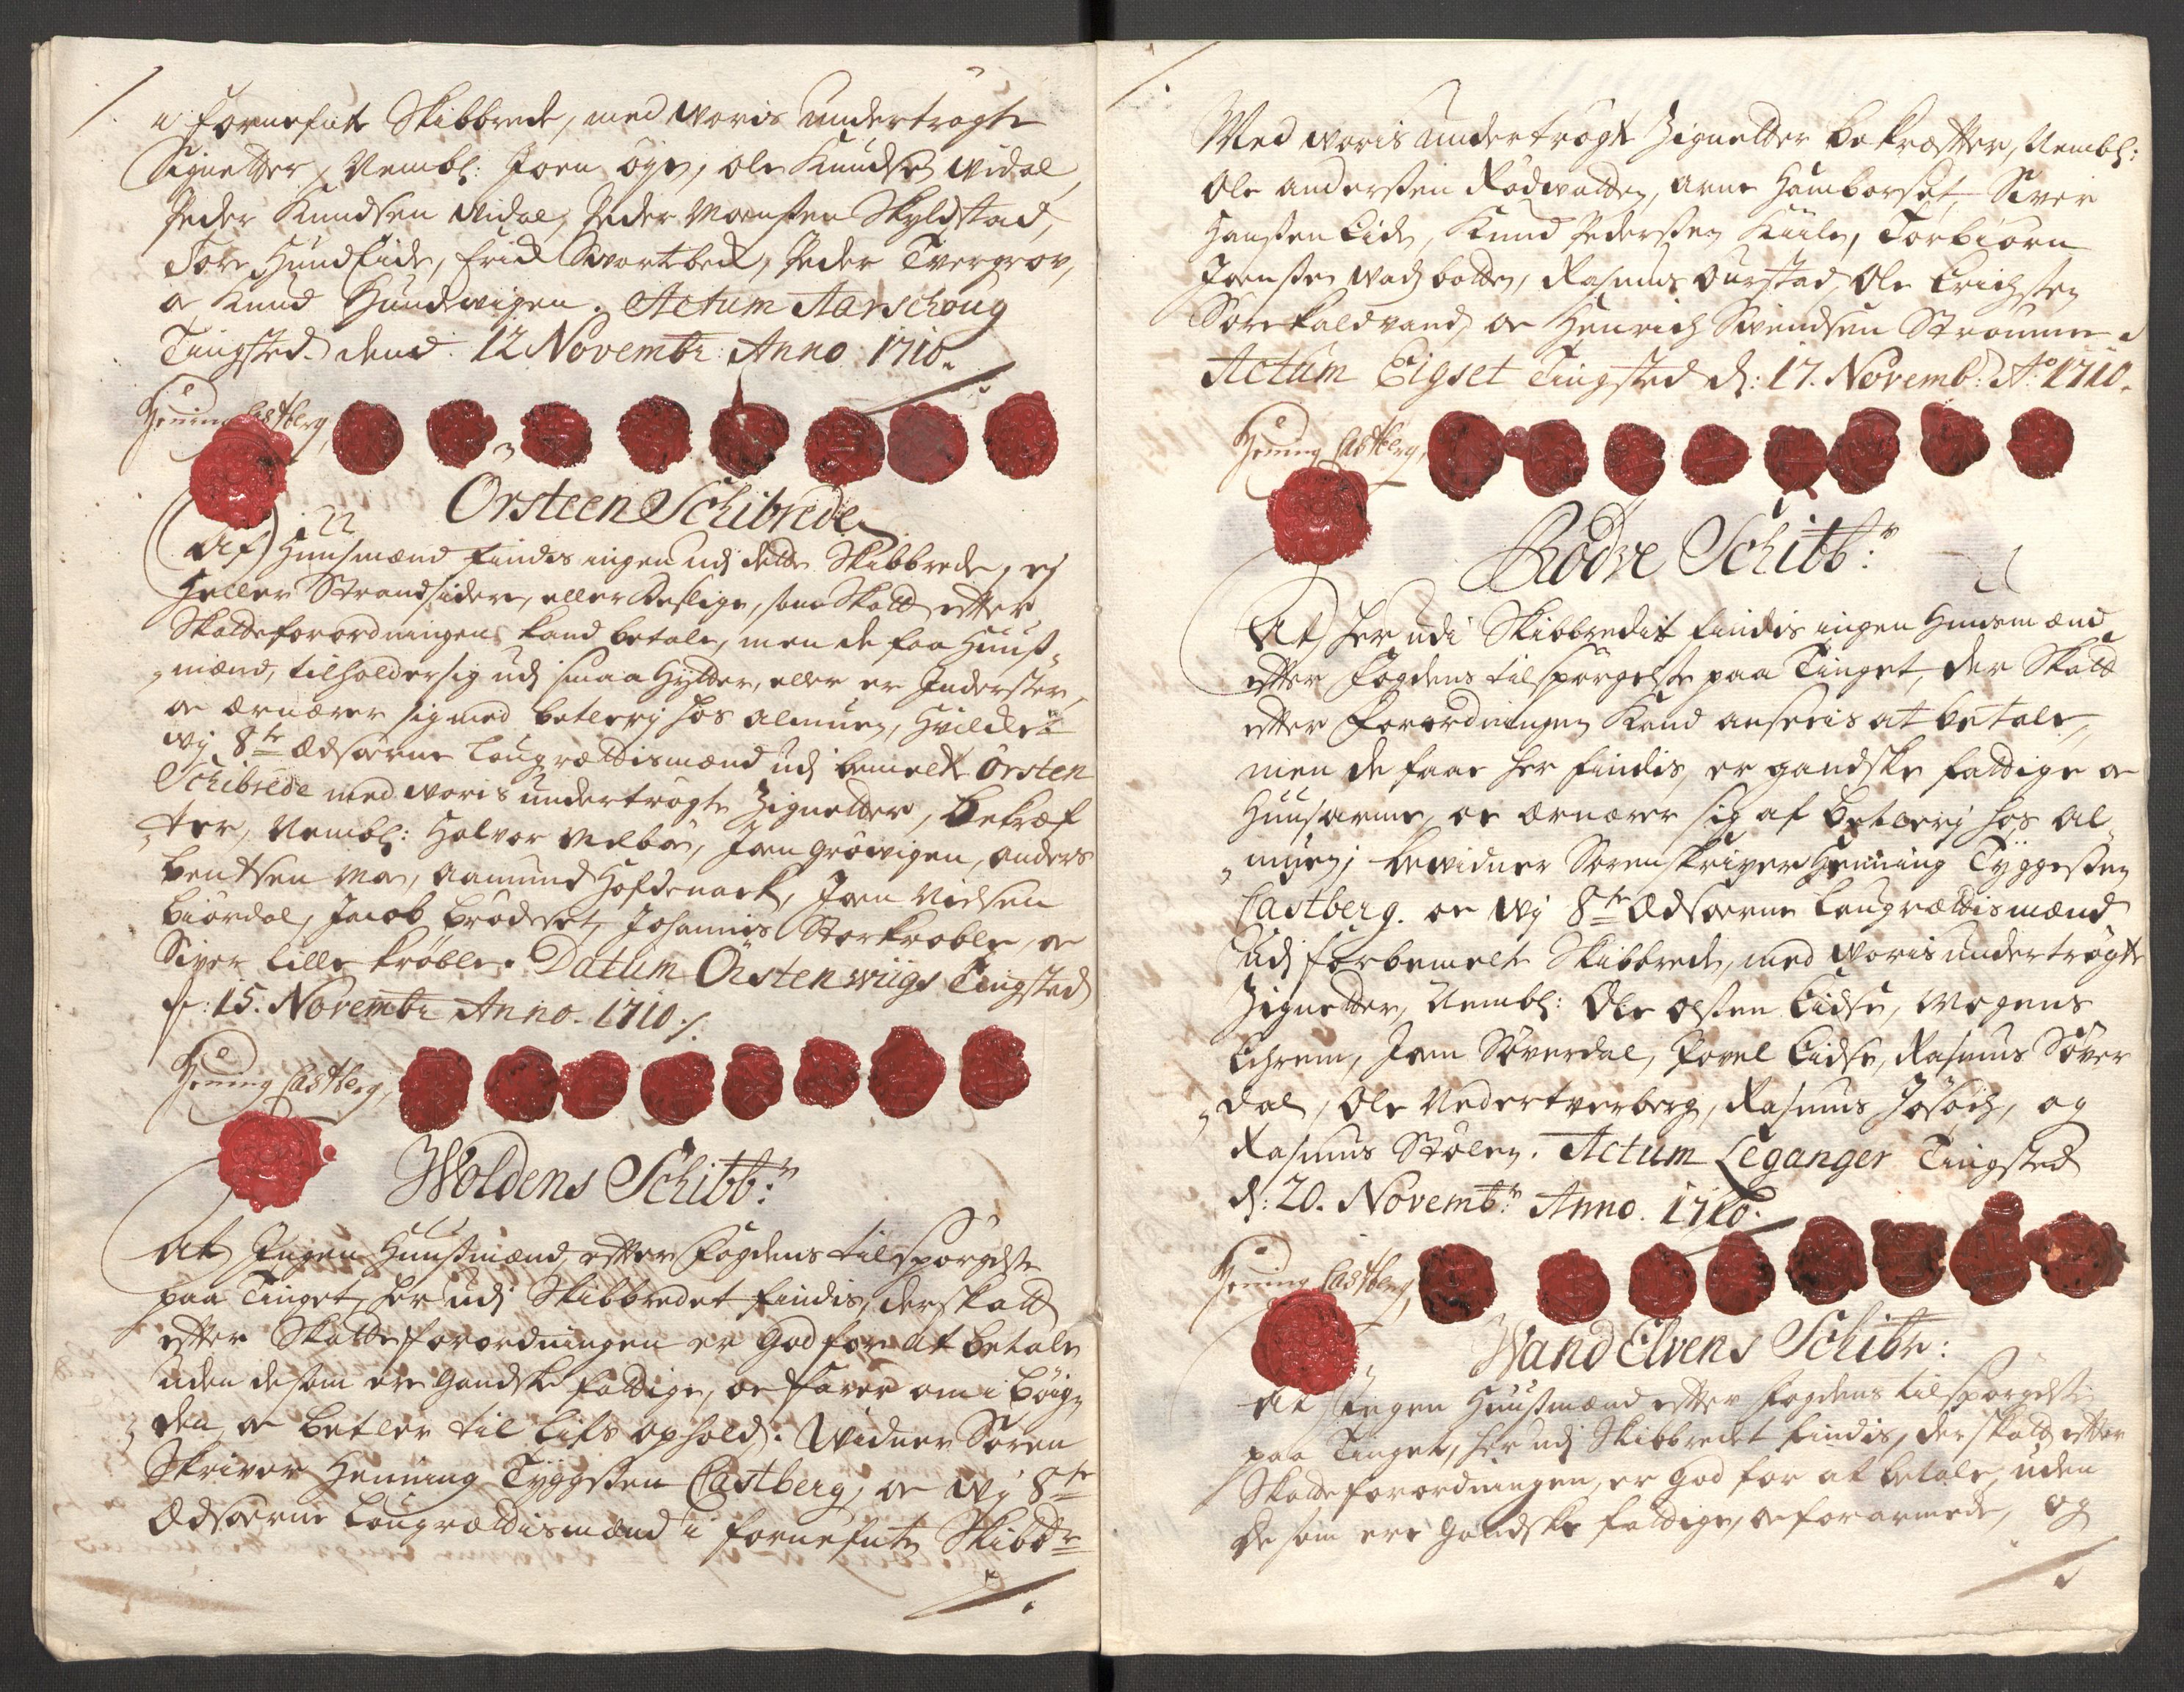 i fornefnte Skibbrede, med woris undertrøgte
Signetter, Nembl: Joen Øye, Ole Knudsen Widal,
Peder Knudsen Widal, Peder Monsen Skyldstad,
Tore Hundeide, Erick Swartebek, Peder Tvergrov,
oc Knud Hundwigen. Actum Aarschoug
Tingsted dend 12 Novembr: Anno 1710.
Hening Castberg,
Örsteen Schibrede
At Huusmænd findes ingen udj dette Skibbrede, ej
heller Strandsidere, eller deslige, som Skatt efter
Skatteforordningen kand betale, men de faa Huus-
mænd, tilholder sig udj smaa Hytter, eller er Inderster,
oc ærnærer sig med betlerj hos almuen, Hvilcket
wj 8te Edsorne Laugrættismænd udj bemelte Örsten
Schibrede med woris undertrøgte Zignetter, bekræf-
ter, Nembl: Halvor Melbøe, Joen Grøwigen, Anders
Bentsen Moe, Aamund Hofdenack, Joen Nielsen
Biördal, Jacob Brudeset, Johannis Storkroble, oc
Siver Lille Krøble. Datum Örstenwiigs Tingsted
d: 15. Novembr Anno. 1710 ./.
Hening Castberg,
Woldens Schibbr:
At Ingen Huusmænd, efter Fogdens tilspørgelse
paa Tinget, her udj Skibbredet findis, der skatt
efter Skatteforordningen er god for at betale
uden de som ere gandske fattige, oc farer om i böig-
den oc betler til lifs ophold. Widner Soren
Skriver Henning Tÿggesen Castberg, oc wj 8te
Edsorne Laugrættismænd i fornefnte Skibbr
Med woris undertrøgte Zignetter bekræfter, Nembl:
Ole Andersen Rødwatten, Arne Hamborset, Siver
Hansen Eide, Knud Pedersen Kiile, Torbiørn
Joensen Wadbotten, Rasmus Ourstad, Ole Erichsen
Sørekaldvand, oc Henrich Swendsen Strømme.
Actum Eigset Tingsted d: 17. Novemb: Ao 1710.
Hening Castberg,
Rödve Schibbr:
At her udi Skibbredit findis ingen Huusmænd
efter Fogdens tilspørgelse paa Tinget, der Skatt
efter Forordningen kand anseeis at betale,
men de faae her findis, er gandske fattige oc
Huusarme, oc ærnærer sig af betlerj hos al-
muen; bewidner Sorenskriver Henning Tÿggesen
Castberg. oc wj 8te Edsorne Laugrættismænd
udj forbemelte Skibbrede, med woris undertrøgte
Zignetter, Nembl: Ole Olsen Eidse, Mogens
Echrem, Joen Söverdal, Povel Eidse, Rasmus Söver-
dal, Ole Nedertverberg, Rasmus Josöch, og
Rasmus Stölen. Actum Leganger Tingsted
d: 20. Novembr: Anno. 1710.
Hening Castberg,
Wand Elvens Schibr:
At Ingen Huusmænd efter Fogdens tilspørgelse
paa Tinget, her udj Skibbredet findis, der skatt efter
Skatteforordningen, er god for at betale, uden
de som ere gandske fattige, oc forarmede, og